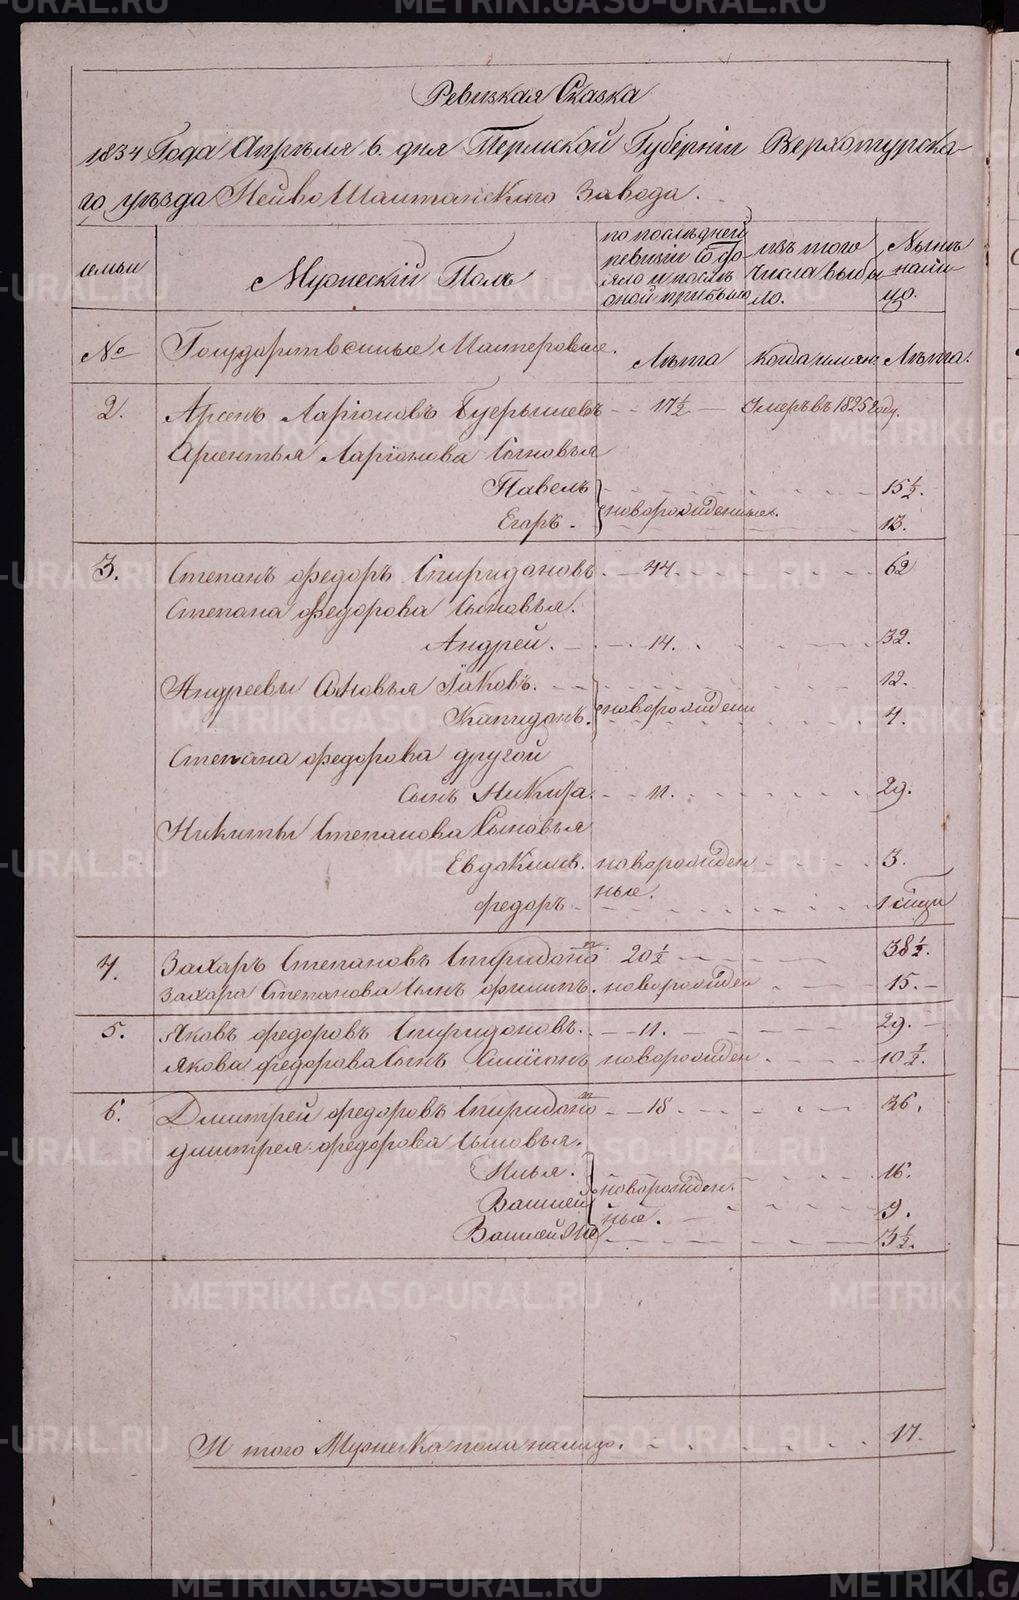 Ревизкая Сказка
1834 Года Апръля 6. дня Пермской Губерніи Верхотурска-
го уъзда Нейво Шаитанскаго Завода.
семьи
Мужескій Полъ
по послъдней
ревизіи состо
яло и послъ
оной прибыло
изъ того
числа выбы
ло.
Нынъ
нали
цо.
№
Государственные Мастеровые.
Лъта
когда имян:
Лъта.
2. Арсенъ Ларіоновъ - - 17½ - Умеръ въ 1825 году.
Арсентья Ларіонова Сыновья
Павелъ 15½.
Егоръ. новорожденные. 13.
3. Степанъ Федоръ Спиридоновъ. - 44. 62
Степана Федорова Сыновья.
Андрей. - 14. 32.
Андреевы Сыновья Іаковъ. 12.
Капидонъ. новорожденн 4.
Степана Федорова другой
Сынъ Никита. - 11. 29.
Никиты Степанова Сыновья
Евдокимъ. новорожден 3.
Федоръ ные.
4. Захаръ Степановъ Спиридоно 20½ 38½.
Захара Степанова Сынъ Филипъ. новорожден 15. -
5. Яковъ Федоровъ Спиридоновъ. - 11. 29. -
Якова Федорова Сынъ Симіонъ новорожден. 10½.
6. Дмитрей Федоровъ Спиридоно - - 18 36.
Дмитрея Федорова Сыновья.
Илья. 16.
Василей новорожден. 9.
Василей же ные. 3½.
И того Мужеска пола налицо. 17.
METRIKI.GASO-URAL.RU